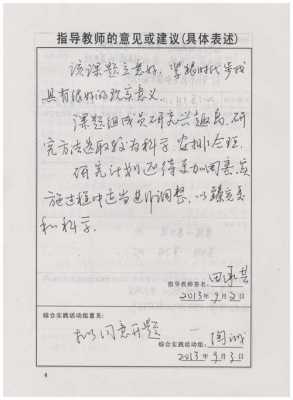 指导教师的意见或建议(具体表述)
该课题立意好,紧跟时代步伐
具有很好的教育意义。
课题组成员研究兴趣高,研
究方法选取较为科学,安排合理。
研究计划还待更加周密,实
施过程中适当进行调整,以臻完善
和科学。
指导教师签名:
2013年9月2日
综合实践活动组意见:
拟同意开题
综合实践活动组:
2013年9月3日